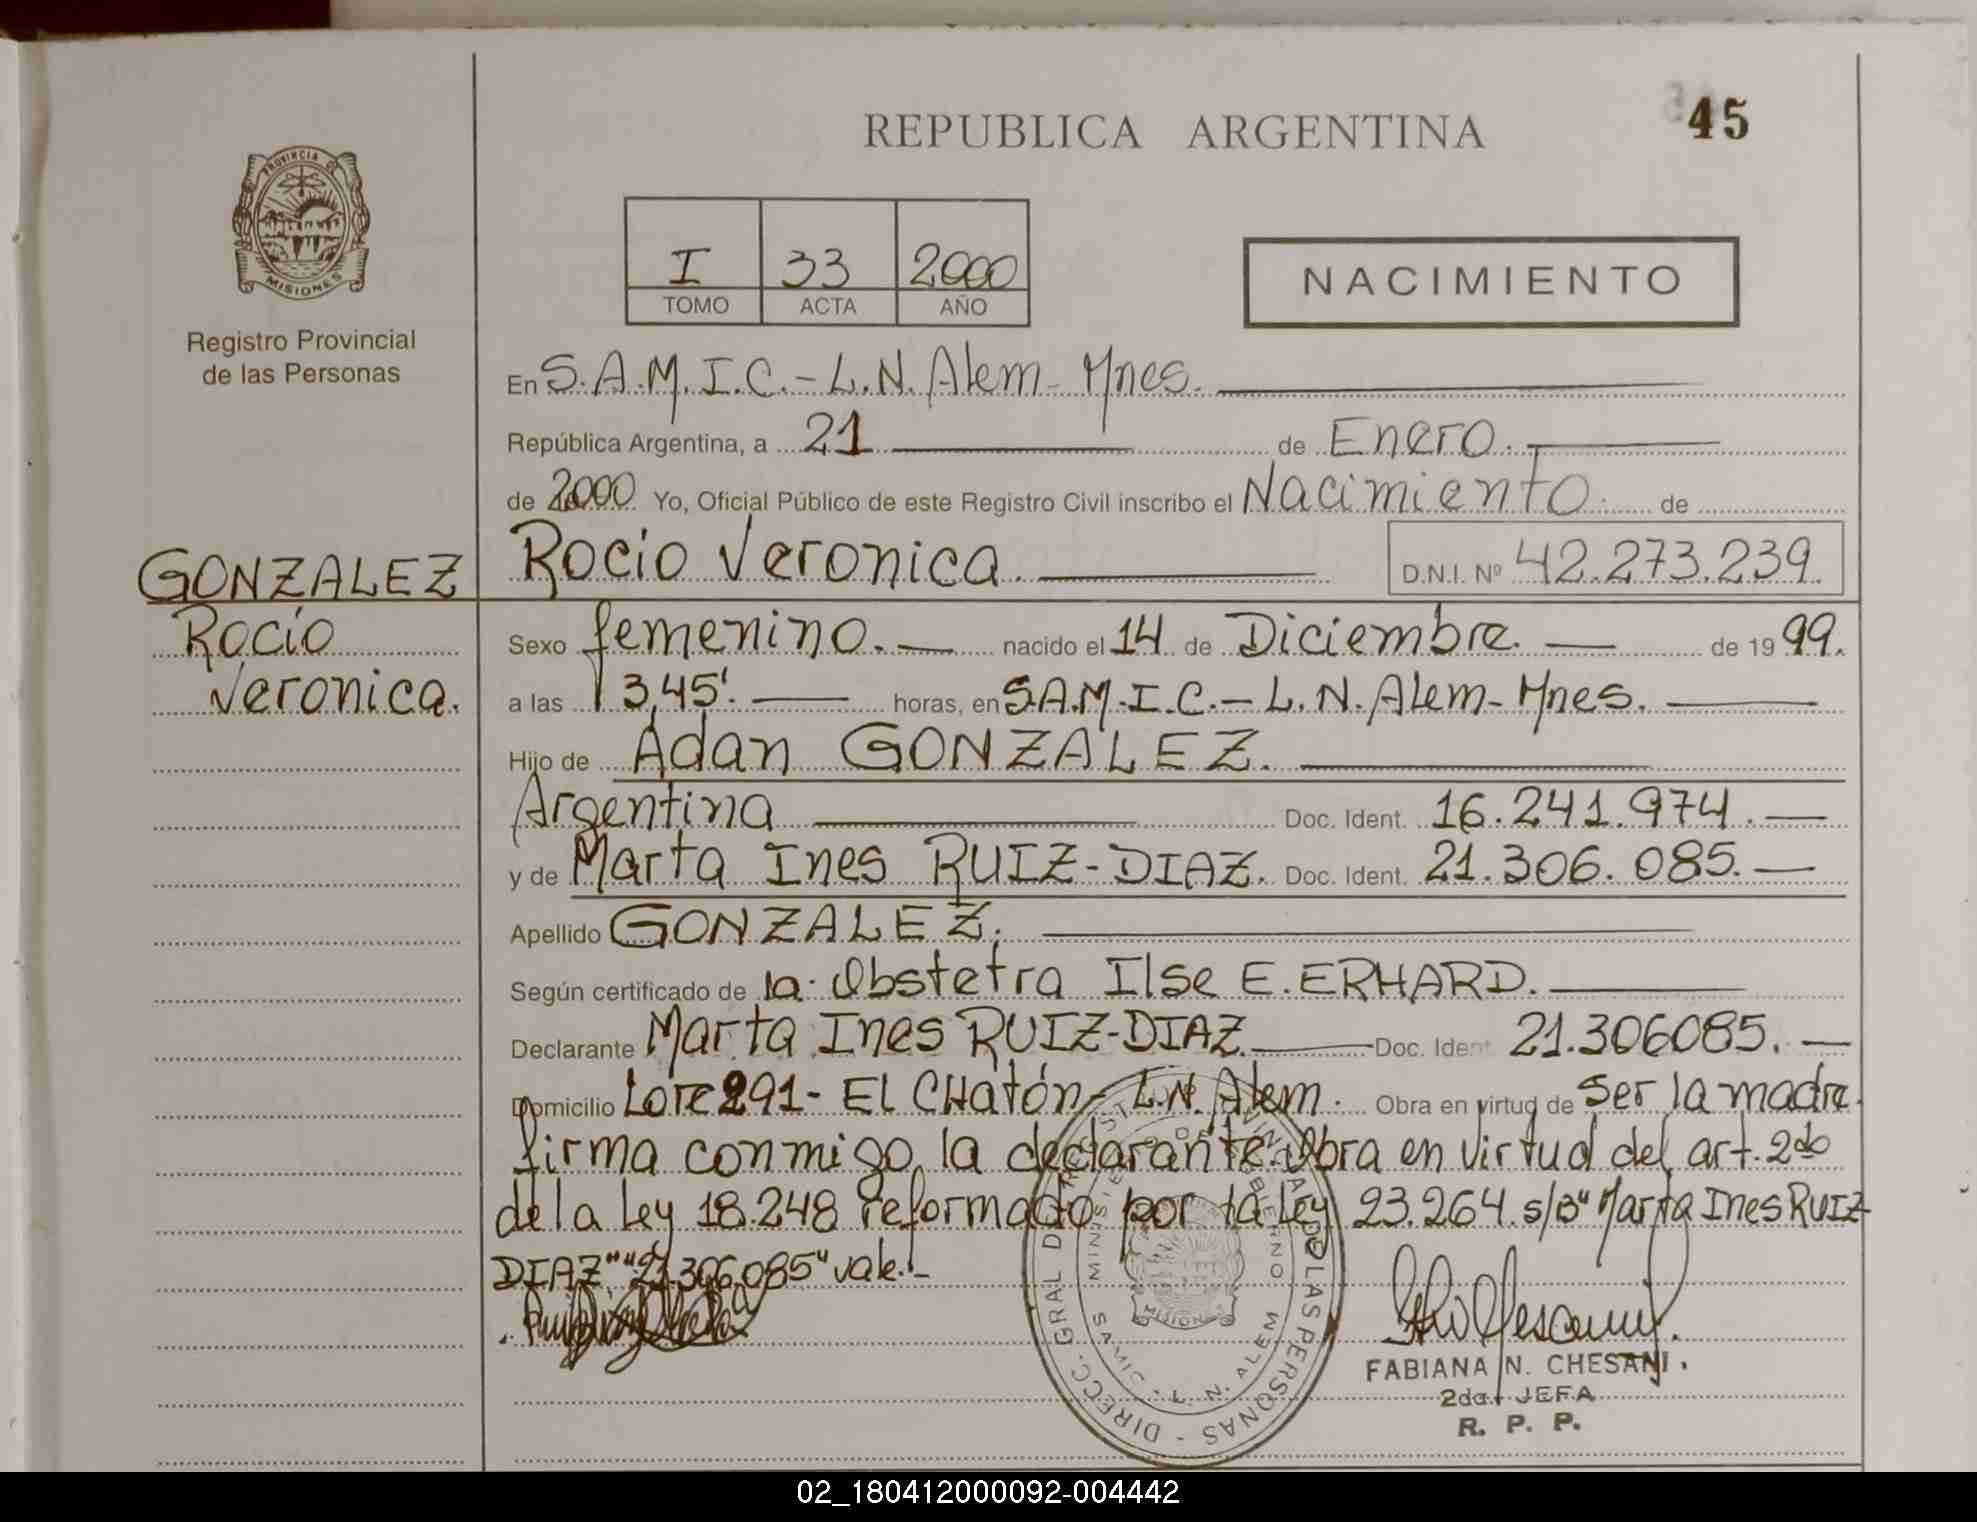 REPUBLICA ARGENTINA
45
PROVINCIA DE
MISIONES
Registro Provincial
de las Personas
I 33 2000
TOMO ACTA AÑO
NACIMIENTO
En S.A.M.I.C.-L.N.Alem-Mnes.
República Argentina, a 21 de Enero.
de 2000 Yo, Oficial Público de este Registro Civil inscribo el Nacimiento. de
Rocio Veronica. D.N.I. Nº 42.273.239.
GONZALEZ
Rocio
Veronica.
Sexo femenino. nacido el 14 de Diciembre. de 19 99.
a las 13,45'. horas, en S.A.M.I.C.-L.N.Alem-Mnes.
Hijo de Adan GONZALEZ.
Argentina Doc. Ident. 16.241.974.
y de Marta Ines RUIZ-DIAZ. Doc. Ident. 21.306.085.
Apellido GONZALEZ.
Según certificado de la Obstetra Ilse E. ERHARD.
Declarante Marta Ines RUIZ-DIAZ. Doc. Ident 21.306085.
Domicilio Lote 291- El CHatón- L.N. Alem. Obra en virtud de Ser la madre.
firma conmigo la declarante. Obra en virtud del art. 2do
de la Ley 18.248 reformado por la Ley 23.264. s/B" Marta Ines RUIZ-
DIAZ" "21.306.085" vale.-
DIRECC. GRAL DE LAS PERSONAS
SAMIC - L. N. ALEM
MISIONES
FABIANA N. CHESANI.
2da. JEFA
R. P. P.
02_180412000092-004442